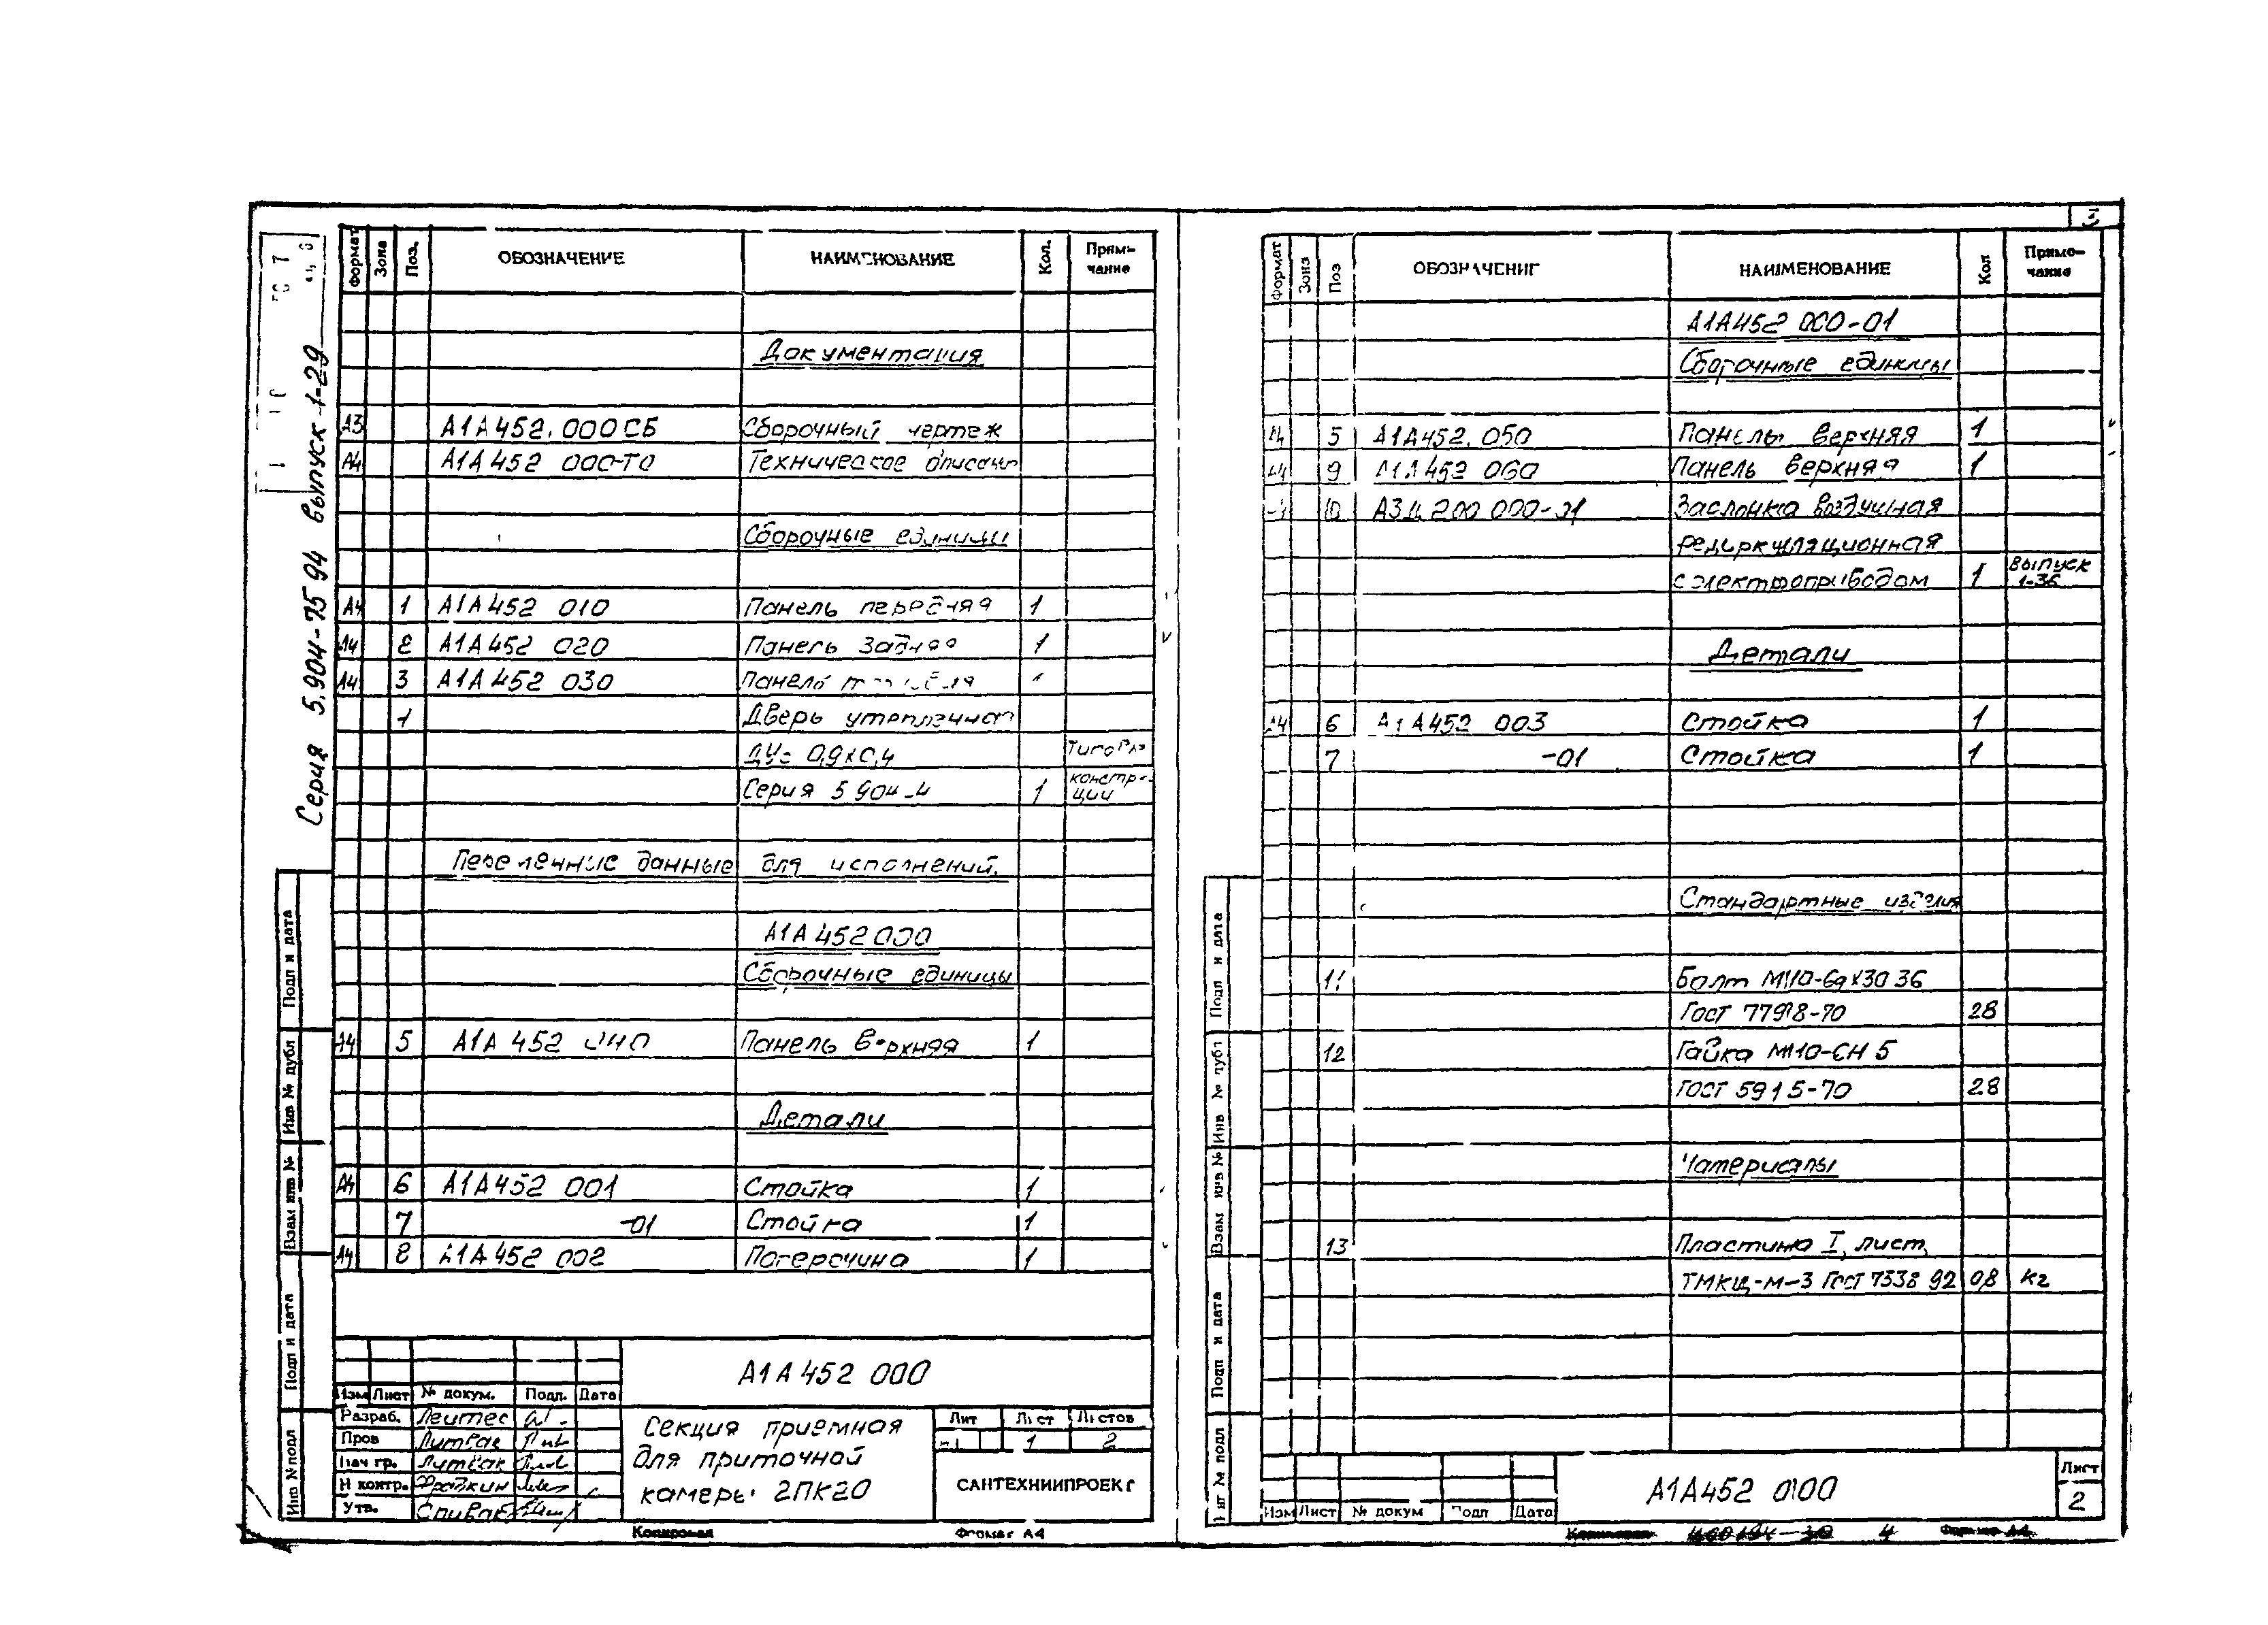 Серия 5.904-75 94 выпуск 1-29
Формат Зона Поз. ОБОЗНАЧЕНИЕ НАИМЕНОВАНИЕ Кол. Приме-
чание
Документация
А3 А1А452.000СБ Сборочный чертеж
А4 А1А452 000-ТО Техническое описание
Сборочные единицы
А4 1 А1А452 010 Панель передняя 1
А4 2 А1А452 020 Панель задняя 1
А4 3 А1А452 030 Панель
Дверь утепленная
0,9х0,4
Серия 5 904-4 1 констр-
ции
Переменные данные для исполнений.
А1А452000
Сборочные единицы
А4 5 А1А 452 040 Панель верхняя 1
Детали
А4 6 А1А452 001 Стойка 1
7 -01 Стойка 1
А4 8 А1А452 002 Поперечина 1
А1А452 000
Изм Лист № докум. Подп. Дата
Разраб. Лейтес
Пров Литвак
Нач гр. Литвак
Н контр. Фрадкин
Утв. Спивак
Секция приемная
для приточной
камеры 2ПК20
Лит Лист Листов
1 2
САНТЕХНИИПРОЕКТ
Подп и дата
Инв № дубл
Взам инв №
Подп и дата
Инв № подл
Копировал Формат А4
3
Формат Зона Поз ОБОЗНАЧЕНИЕ НАИМЕНОВАНИЕ Кол Приме-
чание
А1А452 000-01
Сборочные единицы
А4 5 А1А452.050 Панель верхняя 1
А4 9 А1А452 060 Панель верхняя 1
10 200 000-01 Заслонка воздушная
рециркуляционная
с электроприводом 1 выпуск
1-36
Детали
А4 6 А1А452 003 Стойка 1
7 -01 Стойка 1
Стандартные изделия
11 Болт М10-6gх30 36
Гост 7798-70 28
12 Гайка М10-6Н 5
ГОСТ 5915-70 28
Материалы
13 Пластина I, лист,
ТМКЩ-М-3 Гост 7338 92 0,8 кг
Подп и дата
Инв № дубл
Взам инв №
Подп и дата
Инв № подл
Изм Лист № докум Подп Дата
А1А452 000
Лист
2
Копировал 4 Формат А4